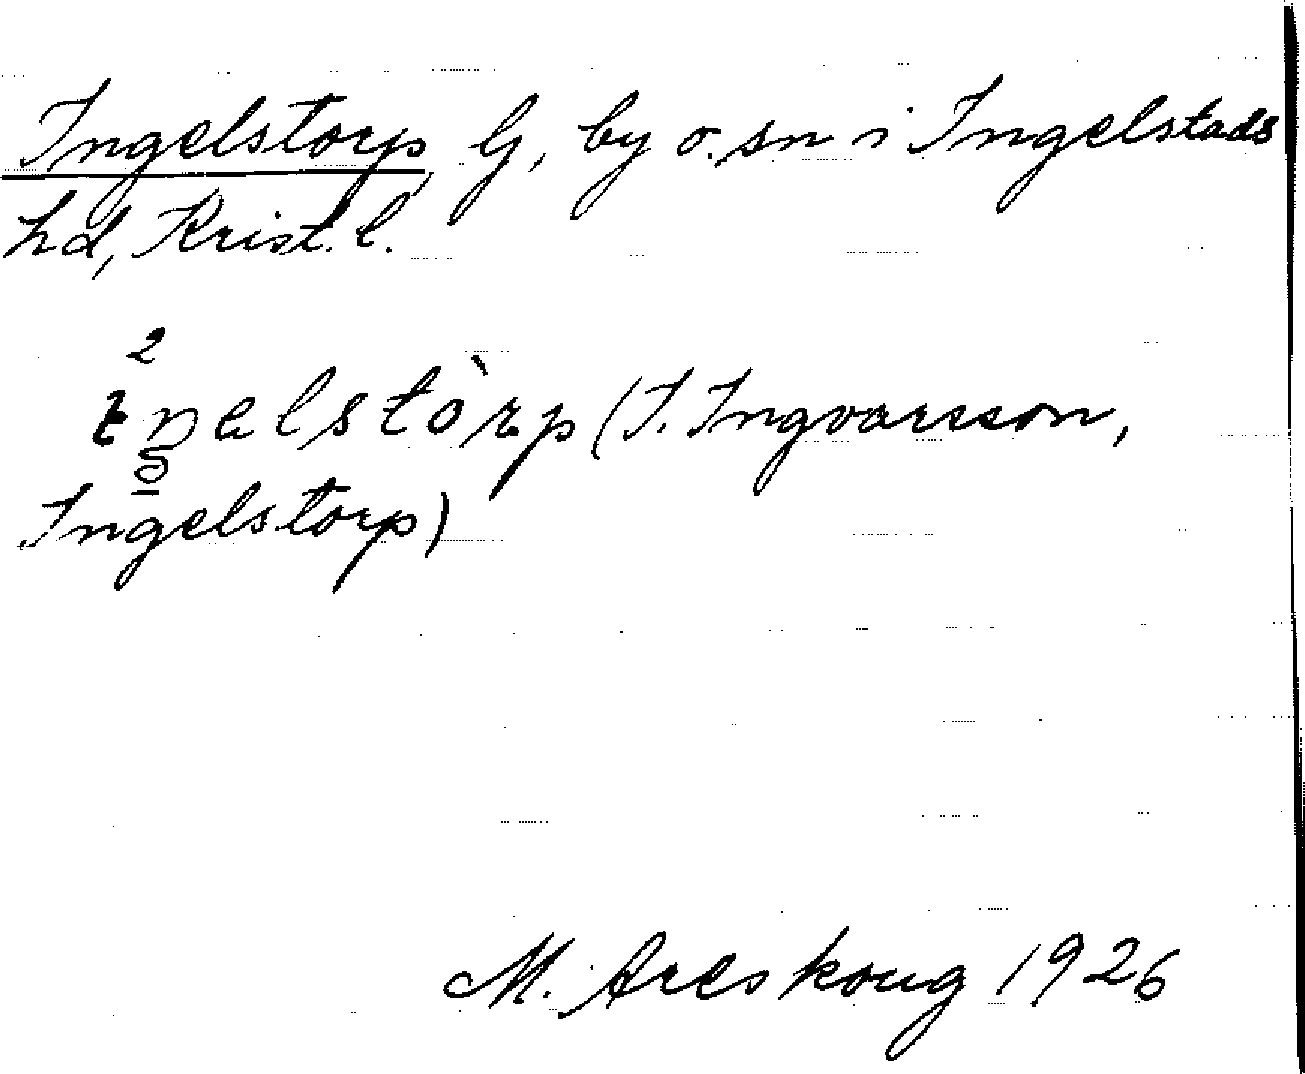 Ingelstorp G, by o. sn i Ingelstads
hd, Krist. l.
(J. Ingvarsson,
Ingelstorp)
M. Areskoug 1926